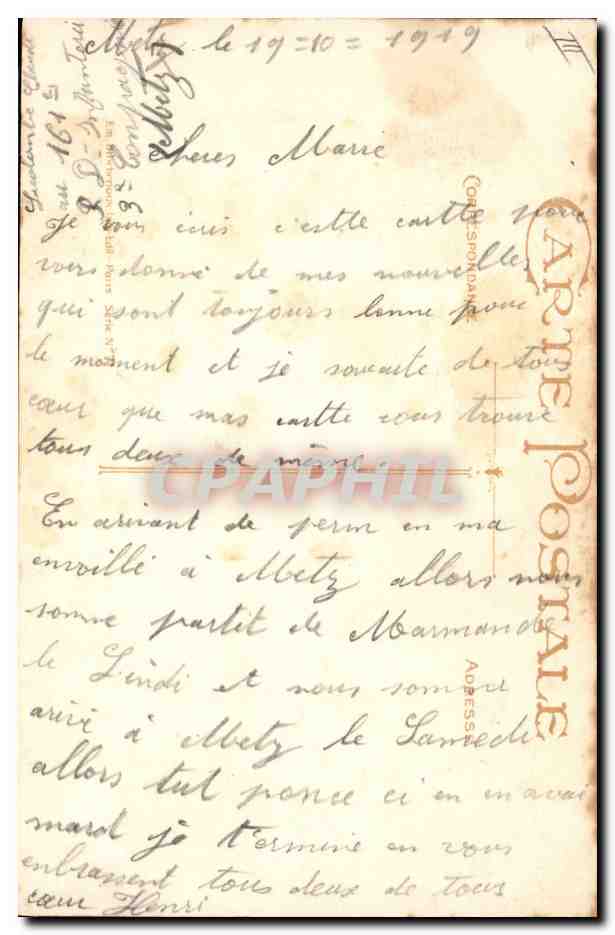 Metz le 19=10=1919
III
au 161e
D-Infanterie
3e Compagnie
(Metz)
Cheres Marie
Je vous écris c'estte cartte pour
vous donné de mes nouvelles
qui sont toujours bonne pour
le moment et je souaite de tous
cœur que mas cartte vous trouve
tous deux de même.
En arivant de perm en ma
envoillé à Metz allors nous
somme partit de Marmande
le Lindi et nous somme
arivé à Metz le Samedi
allors tut ponce ci en en avai
mard je termine en vous
enbrassent tous deux de tous
cœur Henri
CARTE POSTALE
CORRESPONDANCE
ADRESSE
Paris Série N°
CPAPHIL